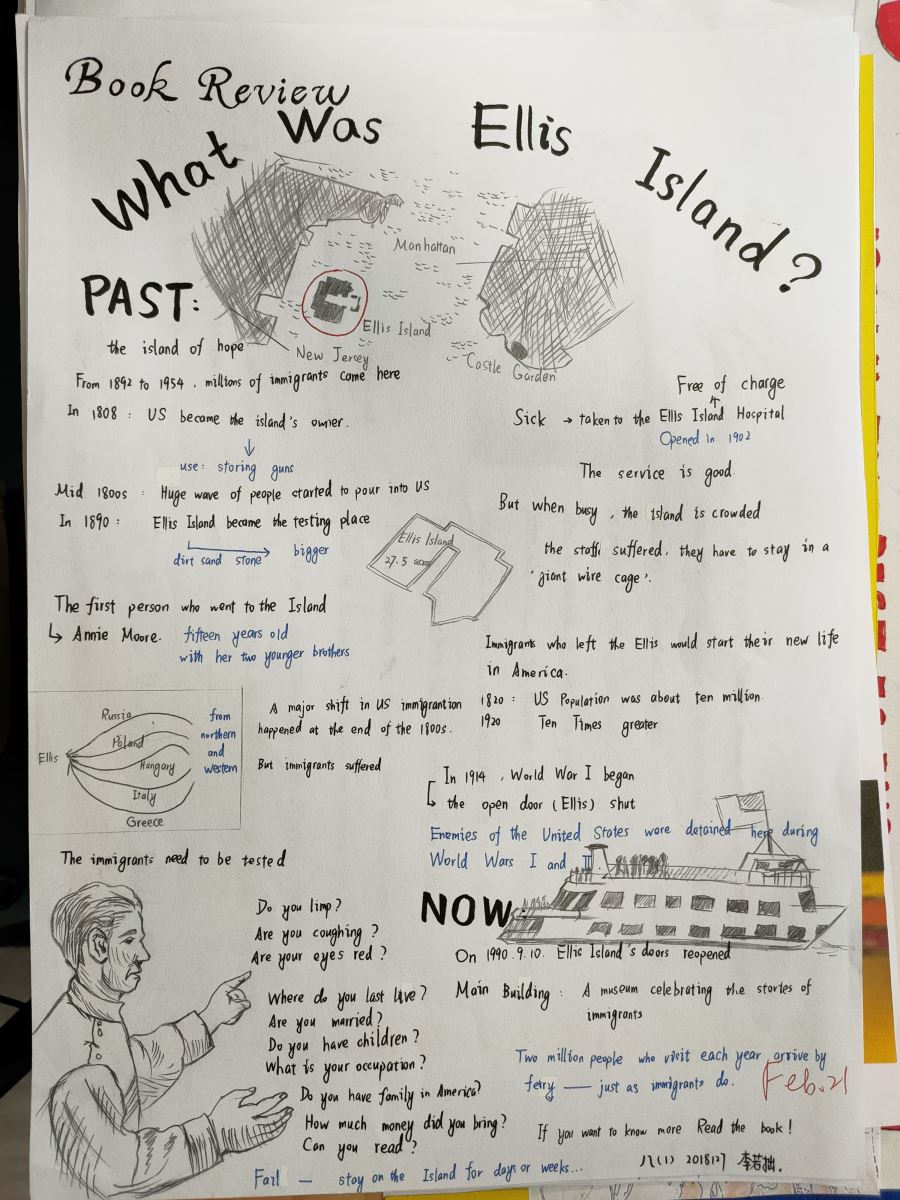 Book Review
What Was Ellis Island?
Manhattan
Ellis Island
New Jersey
Castle Garden
PAST:
the island of hope
From 1892 to 1954, millions of immigrants came here
In 1808: US became the island's owner.
use: storing guns
Mid 1800s: Huge wave of people started to pour into US
In 1890: Ellis Island became the testing place
dirt sand stone → bigger
Ellis Island
27.5 acre
The first person who went to the Island
↳ Annie Moore. fifteen years old
with her two younger brothers
Ellis
Russia
Poland
Hungary
Italy
Greece
from
northern
and
western
A major shift in US immigrantion
happened at the end of the 1800s.
But immigrants suffered
The immigrants need to be tested
Do you limp?
Are you coughing?
Are your eyes red?
Where do you last live?
Are you married?
Do you have children?
What is your occupation?
Do you have family in America?
How much money did you bring?
Can you read?
Fail — stay on the Island for days or weeks...
Free of charge
Sick → taken to the Ellis Island Hospital
Opened in 1902
The service is good
But when busy, the island is crowded
the staff suffered. they have to stay in a
'giant wire cage'.
Immigrants who left the Ellis would start their new life
in America.
1820: US Population was about ten million.
1920 Ten Times greater
In 1914, World War I began
↳ the open door (Ellis) shut
Enemies of the United States were detained here during
World Wars I and II
NOW:
On 1990.9.10. Ellis Island's doors reopened
Main Building: A museum celebrating the stories of
immigrants
Two million people who visit each year arrive by
ferry — just as immigrants do.
Feb.21
If you want to know more Read the book!
八(1) 2018127 李若拙.